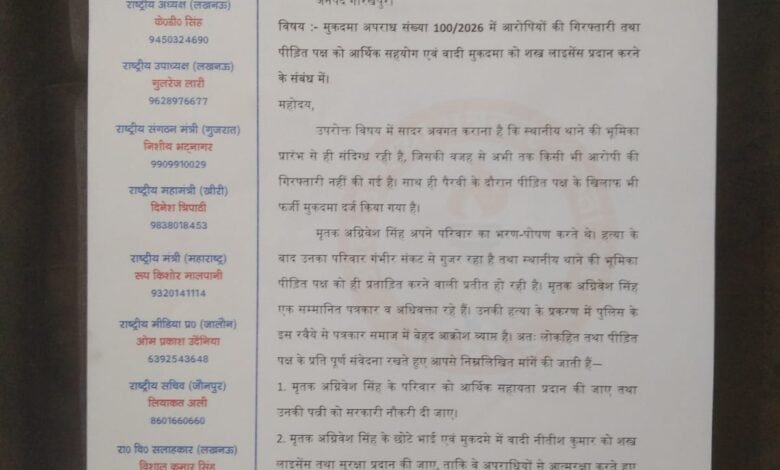 राष्ट्रीय अध्यक्ष (लखनऊ)
के०डी० सिंह
9450324690
राष्ट्रीय उपाध्यक्ष (लखनऊ)
गुलरेज लारी
9628976677
राष्ट्रीय संगठन मंत्री (गुजरात)
निशीथ भटनागर
9909910029
राष्ट्रीय महामंत्री (खीरी)
दिनेश त्रिपाठी
9838018453
राष्ट्रीय मंत्री (महाराष्ट्र)
रूप किशोर मालपानी
9320141114
राष्ट्रीय मीडिया प्र० (जालौन)
ओम प्रकाश उदैनिया
6392543648
राष्ट्रीय सचिव (जौनपुर)
लियाकत अली
8601660660
रा० वि० सलाहकार (लखनऊ)
विशाल कुमार सिंह
जनपद गोरखपुर।
विषय :- मुकदमा अपराध संख्या 100/2026 में आरोपियों की गिरफ्तारी तथा
पीड़ित पक्ष को आर्थिक सहयोग एवं वादी मुकदमा को शस्त्र लाइसेंस प्रदान करने
के संबंध में।
महोदय,
उपरोक्त विषय में सादर अवगत कराना है कि स्थानीय थाने की भूमिका
प्रारंभ से ही संदिग्ध रही है, जिसकी वजह से अभी तक किसी भी आरोपी की
गिरफ्तारी नहीं की गई है। साथ ही पैरवी के दौरान पीड़ित पक्ष के खिलाफ भी
फर्जी मुकदमा दर्ज किया गया है।
मृतक अग्निवेश सिंह अपने परिवार का भरण-पोषण करते थे। हत्या के
बाद उनका परिवार गंभीर संकट से गुजर रहा है तथा स्थानीय थाने की भूमिका
पीड़ित पक्ष को ही प्रताड़ित करने वाली प्रतीत हो रही है। मृतक अग्निवेश सिंह
एक सम्मानित पत्रकार व अधिवक्ता रहे हैं। उनकी हत्या के प्रकरण में पुलिस के
इस रवैये से पत्रकार समाज में बेहद आक्रोश व्याप्त है। अतः लोकहित तथा पीड़ित
पक्ष के प्रति पूर्ण संवेदना रखते हुए आपसे निम्नलिखित मांगें की जाती हैं—
1. मृतक अग्निवेश सिंह के परिवार को आर्थिक सहायता प्रदान की जाए तथा
उनकी पत्नी को सरकारी नौकरी दी जाए।
2. मृतक अग्निवेश सिंह के छोटे भाई एवं मुकदमे में वादी नीतीश कुमार को शस्त्र
लाइसेंस तथा सुरक्षा प्रदान की जाए, ताकि वे अपराधियों से आत्मरक्षा करते हुए